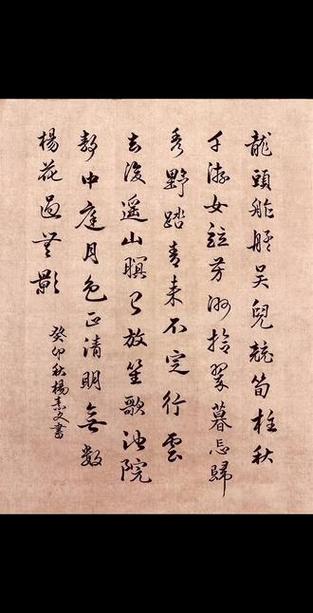 龍頭舴艋吳兒競筍柱秋
千游女竝芳洲拾翠暮忘歸
秀野踏青來不定行雲
去後遙山暝已放笙歌池院
靜中庭月色正清明無數
楊花過無影
癸卯秋楊文書